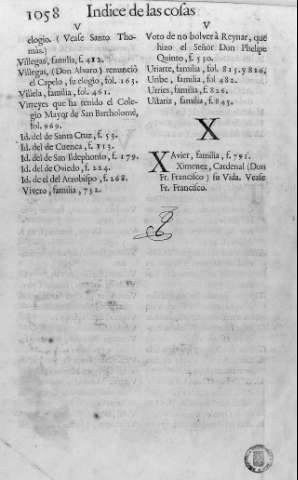 1058 Indice de las cosas
V
elogio. (Vease Santo Tho-
màs.)
Villegas, familia, f. 412.
Villegas, (Don Alvaro) renunciò
el Capelo, su elogio, fol. 163.
Vilela, familia, fol. 461.
Virreyes que ha tenido el Cole-
gio Mayor de San Bartholomè,
fol. 969.
Id. del de Santa Cruz, f. 55.
Id. del de Cuenca, f. 113.
Id. del de San Ildephonso, f. 179.
Id. del de Oviedo, f. 224.
Id. de el del Arzobispo, f. 268.
Vivero, familia, 752.
V
Voto de no bolver à Reynar, que
hizo el Señor Don Phelipe
Quinto, f. 530.
Uriarte, familia, fol. 825. y 826.
Uribe, familia, fol. 482.
Urries, familia, f. 826.
familia, f. 845.
X
XAvier, familia, f. 791.
Ximenez, Cardenal (Don
Fr. Francisco) su Vida. Vease
Fr. Francisco.